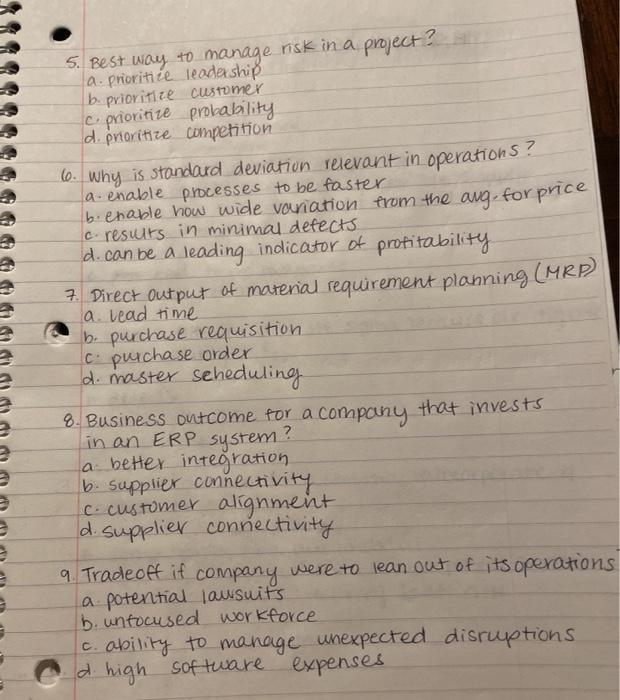 5. Best way to manage risk in a project?
a. prioritize leadership
b. prioritize customer
c. prioritize probability
d. prioritize competition
6. Why is standard deviation relevant in operations?
a. enable processes to be faster
b. enable how wide variation from the avg. for price
c. results in minimal defects
d. can be a leading indicator of profitability
7. Direct output of material requirement planning (MRP)
a. lead time
b. purchase requisition
c. purchase order
d. master scheduling
8. Business outcome for a company that invests
in an ERP system?
a. better integration
b. supplier connectivity
c. customer alignment
d. supplier connectivity
9. Tradeoff if company were to lean out of its operations
a. potential lawsuits
b. unfocused workforce
c. ability to manage unexpected disruptions
d. high software expenses